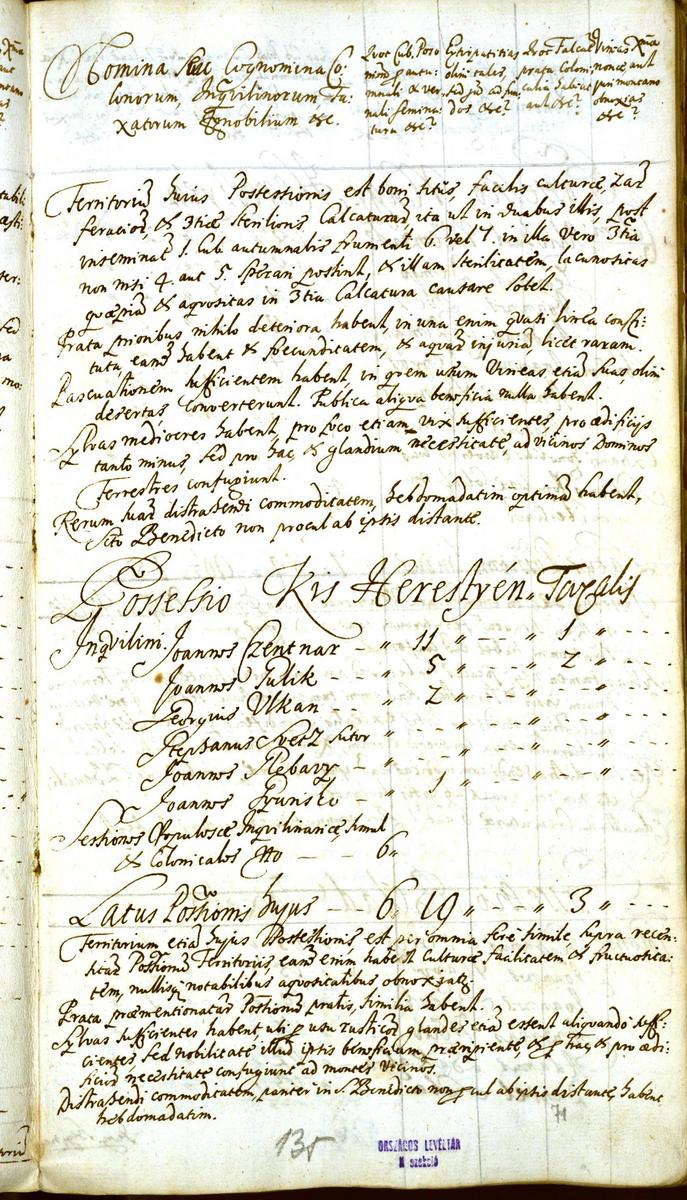 Nomina seu Cognomina Co-
lonorum, Inqvilinorum Ta-
xatorum Ignobilium &c.
Qvot Cub. Poso
nien: p autu-
mnali & ver
nali semina
tura &c?
Extirpatitias
olim tales,
sed jam ad
dos &c?
Qvot Falcat
prata Coloni
aut &c?
Vineas
noncæ aut
juri montano
obnoxias
&c?
Territoriũ hujus Possessionis est boni situs, facilis culturæ,
feracior, & 3tiæ sterilioris Calcaturæ ita ut in duabus illis, post
inseminat 1. Cub. autumnalis frumenti 6. vel 7. in illa vero 3tia
non nisi 4. aut 5 sperari possint, & illam sterilitatem, lacunositas
& aqvositas in 3tia Calcatura causare solet.
Prata prioribus nihilo deteriora habent, in una enim qvasi linea consti-
tuta, eand habent & fœcunditatem, & aquar injuria, licet raram.
Pascuationem sufficientem habent, in qvem usum Vineas etiã suas, olim
desertas converterunt. Publica aliqva beneficia nulla habent.
Sylvas mediocres habent, pro foco etiam vix sufficientes, pro ædificijs
tanto minus, sed pro hac & glandium necessitate, ad vicinos Dominos
Terrestres confugiunt.
Rerum suar distrahendi commoditatem, hebdomadatim optimã habent,
Scto Benedicto non procul ab ipsis distante.
Possessio Kis Herestyén „ Taxalis
Inqvilini. Joannes Czentnar – „ 11 „ – – „ 1 „ - - -
Joannes Pulik – – „ 5 „ – – „ 2 „ - - -
Georgius Vlkan – – „ 2 „ – – „ – – „ - - -
Stephanus Svetz sutor „ – – „ – – „ – – „ - - -
Joannes Rebavy – „ – – „ – – „ – – „ - - -
Joannes – „ 1 „ – – „ – – „ - - -
Sessiones Populosæ Inqvilinariæ, simul
& Colonicales – – 6„
Latus Possionis hujus – – 6„ 19 „ – – „ 3 „ - - -
Territorium etiã hujus Possessionis est per omnia fere simile, supra recen-
sitar Possionũ Territorijs, eand enim habet Culturæ facilitatem & fructuosita-
tem, nullisq notabilibus aqvositatibus obnoxiatũ.
Prata præmentionatar Possionum pratis, similia habent.
Sylvas sufficientes habent ubi p usu rusticor glandes etiã essent aliqvando suffi-
cientes, sed nobilitate illud ipsis beneficium præripiente, & p hac & pro ædi-
ficior necessitate confugiunt ad montes vicinos.
Distrahendi commoditatem, pariter in S. Benedicto non pcul ab ipsis distante, habent
hebdomadatim.
71
135
ORSZÁGOS LEVÉLTÁR